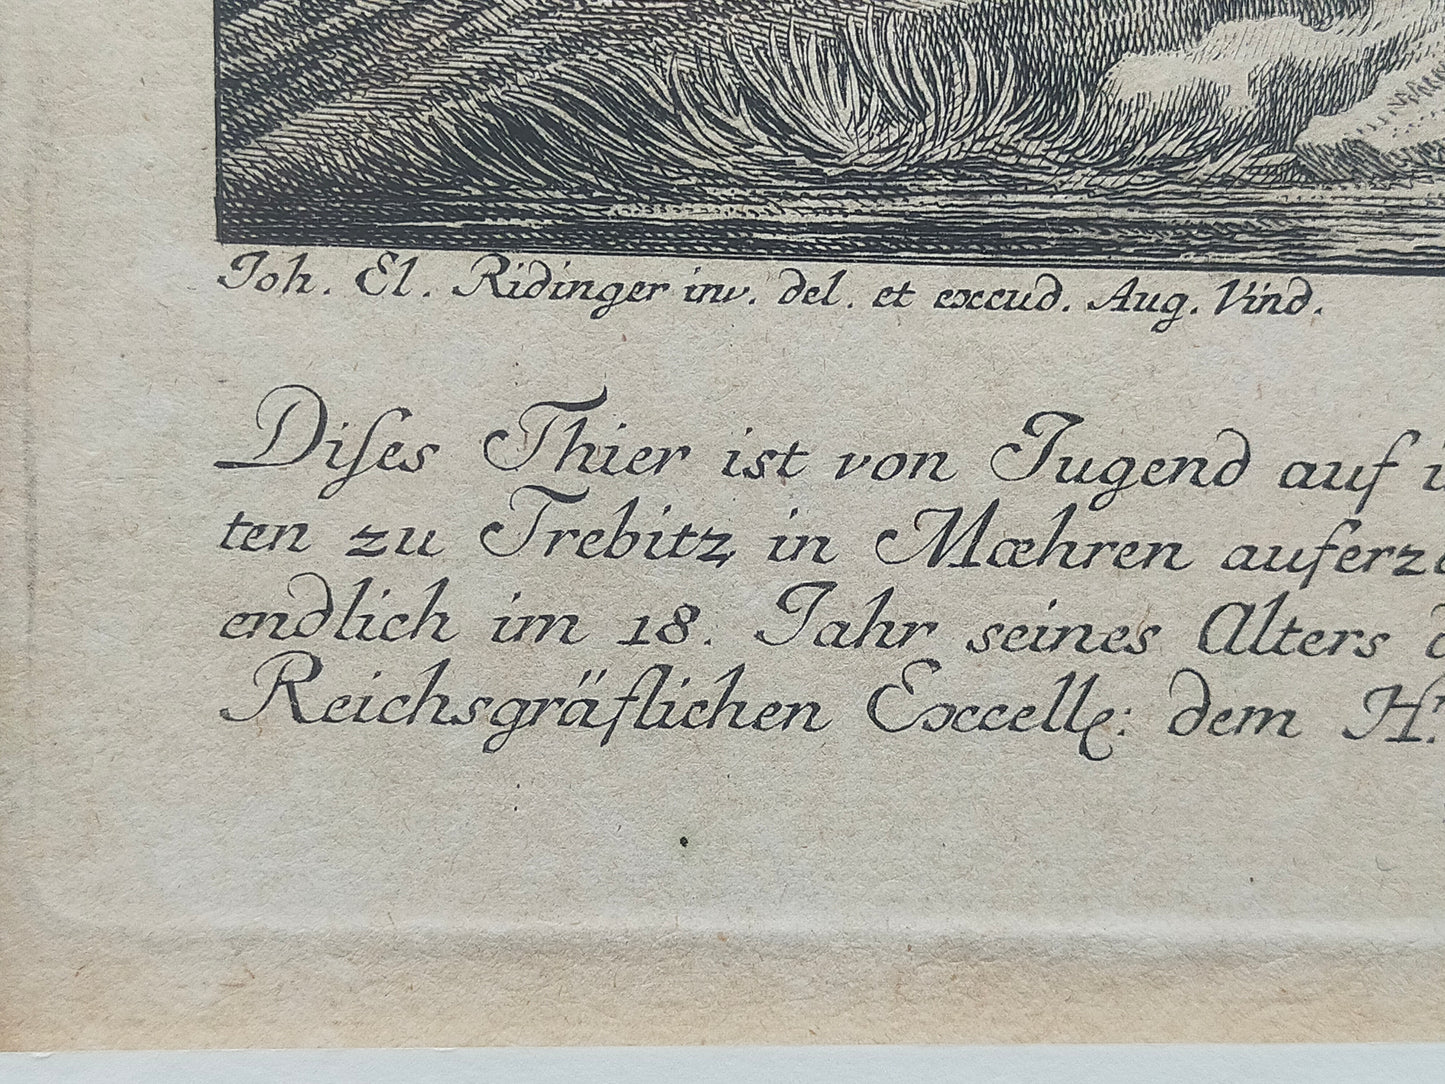 Joh. El. Ridinger inv. del. et excud. Aug. Vind.
Diſes Thier ist von Jugend auf
ten zu Trebitz, in Mæhren
endlich im 18. Jahr seines Alters
Reichsgräflichen Excelle: dem H.